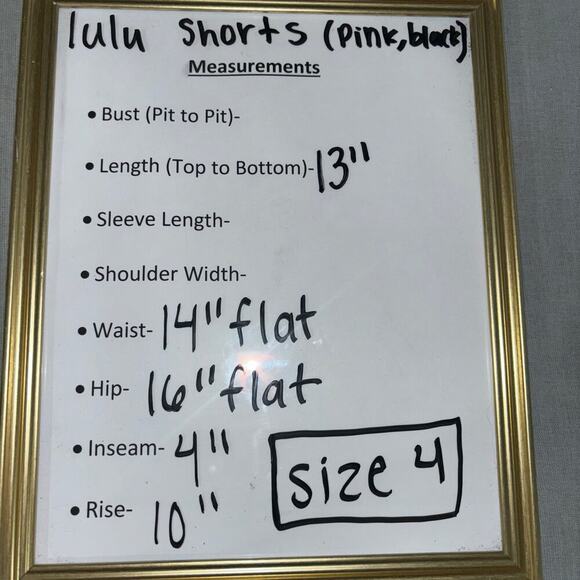 lulu shorts (pink, black)
Measurements
• Bust (Pit to Pit)-
• Length (Top to Bottom)- 13"
• Sleeve Length-
• Shoulder Width-
• Waist- 14" flat
• Hip- 16" flat
• Inseam- 4"
• Rise- 10"
size 4